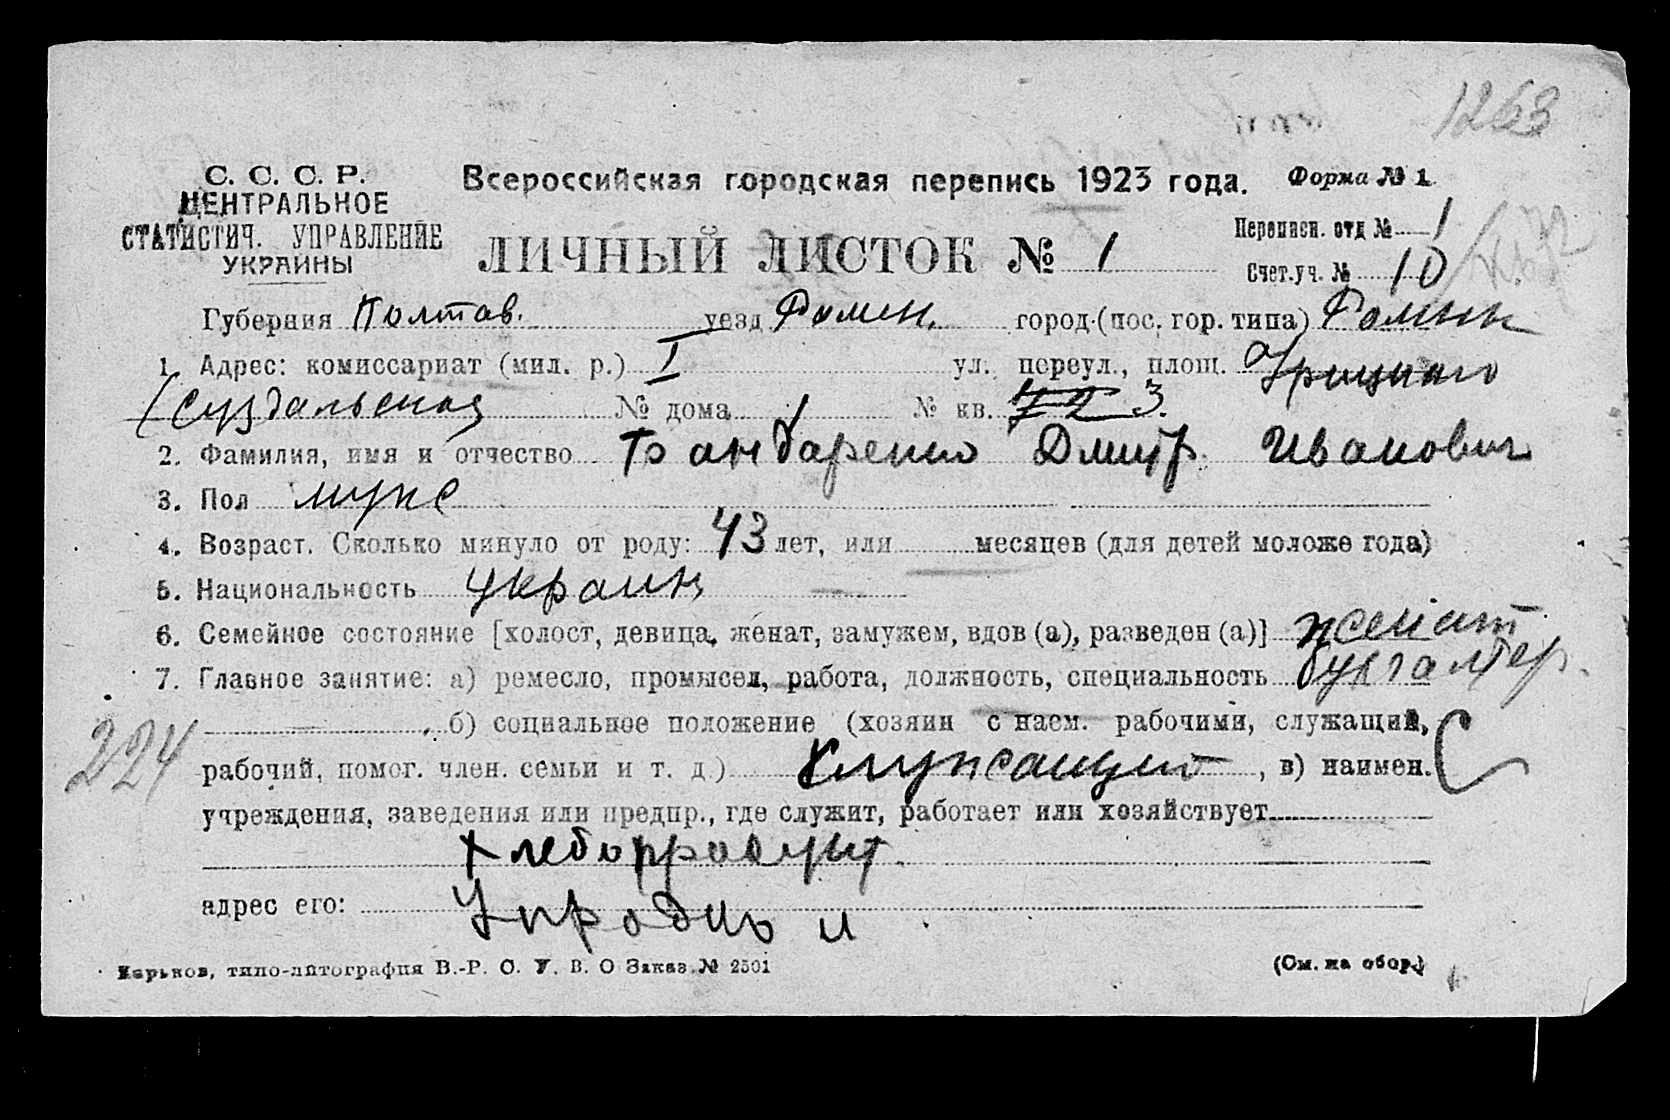 1263
С. С. С. Р.
ЦЕНТРАЛЬНОЕ
СТАТИСТИЧ. УПРАВЛЕНИЕ
УКРАИНЫ
Всероссийская городская перепись 1923 года. Форма № 1.
ЛИЧНЫЙ ЛИСТОК № 1
Переписн. отд № 1
Счет.уч. № 10
Губерния Полтав. уезд Ромен. город (пос. гор. типа) Ромны
1. Адрес: комиссариат (мил. р.) I ул. переул., площ. Урицкого
(Суздальская № дома 1 № кв. 3.
2. Фамилия, имя и отчество Бондаренко Дмитр Иванович
3. Пол муж
4. Возраст. Сколько минуло от роду: 43 лет, или месяцев (для детей моложе года)
5. Национальность украин
6. Семейное состояние [холост, девица, женат, замужем, вдов (а), разведен (а)] женат
7. Главное занятие: а) ремесло, промысел, работа, должность, специальность бухгалтер.
224
, б) социальное положение (хозяин с наем. рабочими, служащий,
рабочий, помог. член. семьи и т. д.) служащий , в) наимен.
учреждения, заведения или предпр., где служит, работает или хозяйствует
адрес его:
Харьков, типо-литография В.-Р. С. У. В. О Заказ № 2501
(См. на обор.)